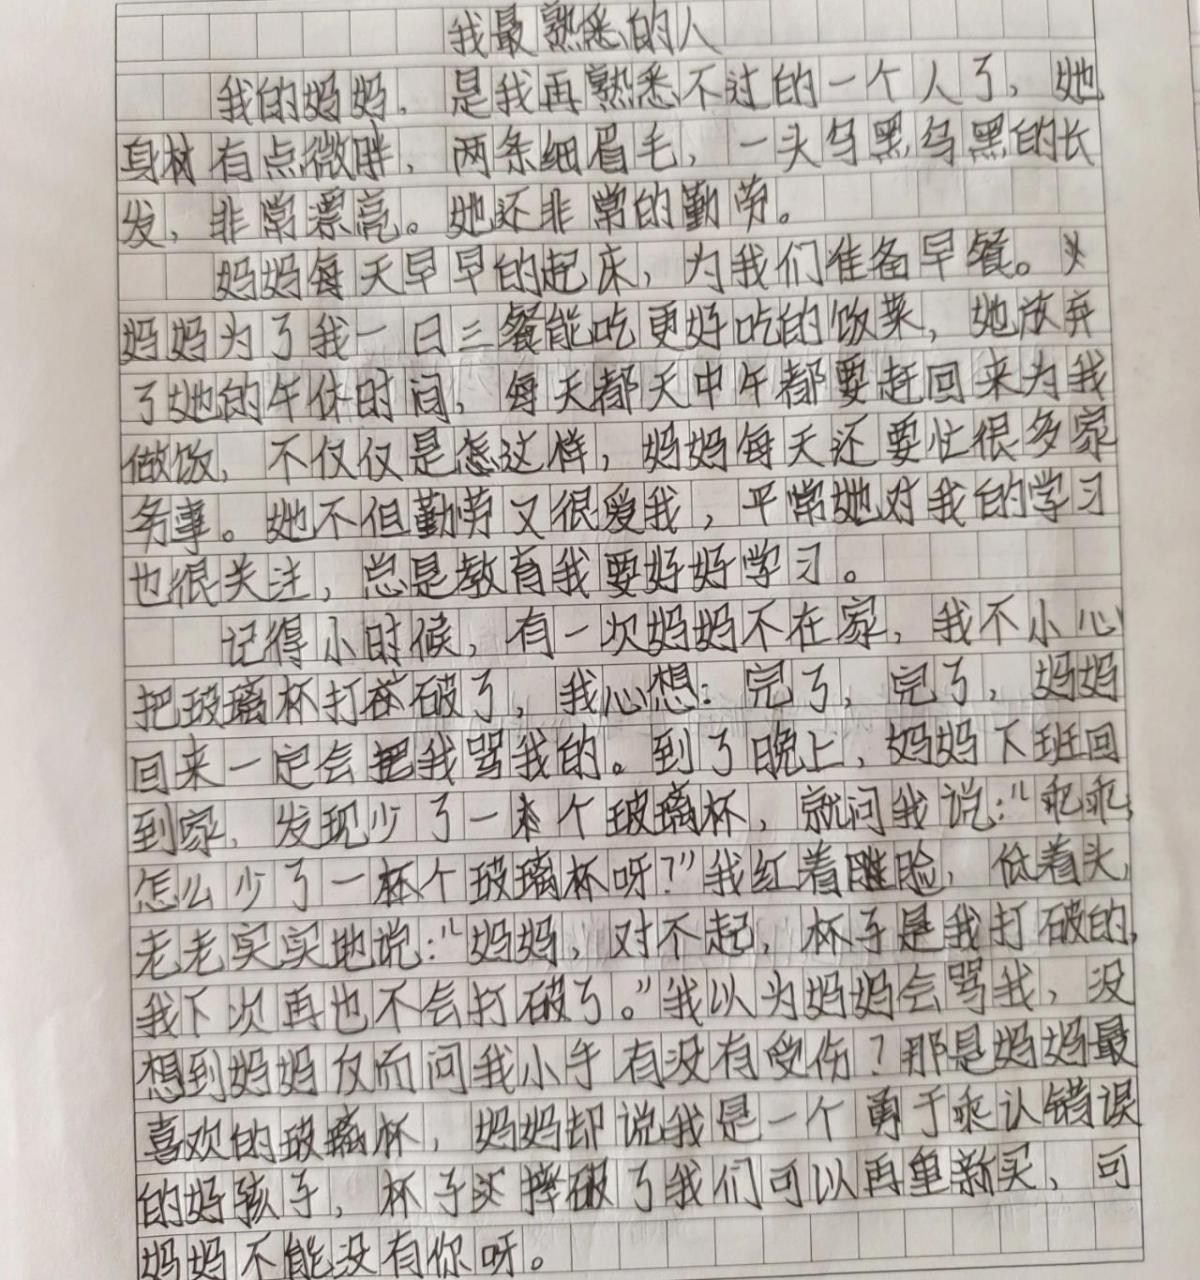 我最熟悉的人
我的妈妈，是我再熟悉不过的一个人了，她
身材有点微胖，两条细眉毛，一头乌黑乌黑的长
发，非常漂亮。她还非常的勤劳。
妈妈每天早早的起床，为我们准备早餐。
妈妈为了我一日三餐能吃更好吃的饭菜，她放弃
了她的午休时间，每天都天中午都要赶回来为我
做饭，不仅仅是怎这样，妈妈每天还要忙很多家
务事。她不但勤劳又很爱我，平常她对我的学习
也很关注，总是教育我要好好学习。
记得小时候，有一次妈妈不在家，我不小心
把玻璃杯打破了，我心想：完了，完了，妈妈
回来一定会把我骂我的。到了晚上，妈妈下班回
到家，发现少了一个玻璃杯，就问我说：“乖乖，
怎么少了一杯个玻璃杯呀？”我红着脸，低着头，
老老实实地说：“妈妈，对不起，杯子是我打破的，
我下次再也不会打破了。”我以为妈妈会骂我，没
想到妈妈反而问我小手有没有受伤？那是妈妈最
喜欢的玻璃杯，妈妈却说我是一个勇于承认错误
的好孩子，杯子摔破了我们可以再重新买，可
妈妈不能没有你呀。